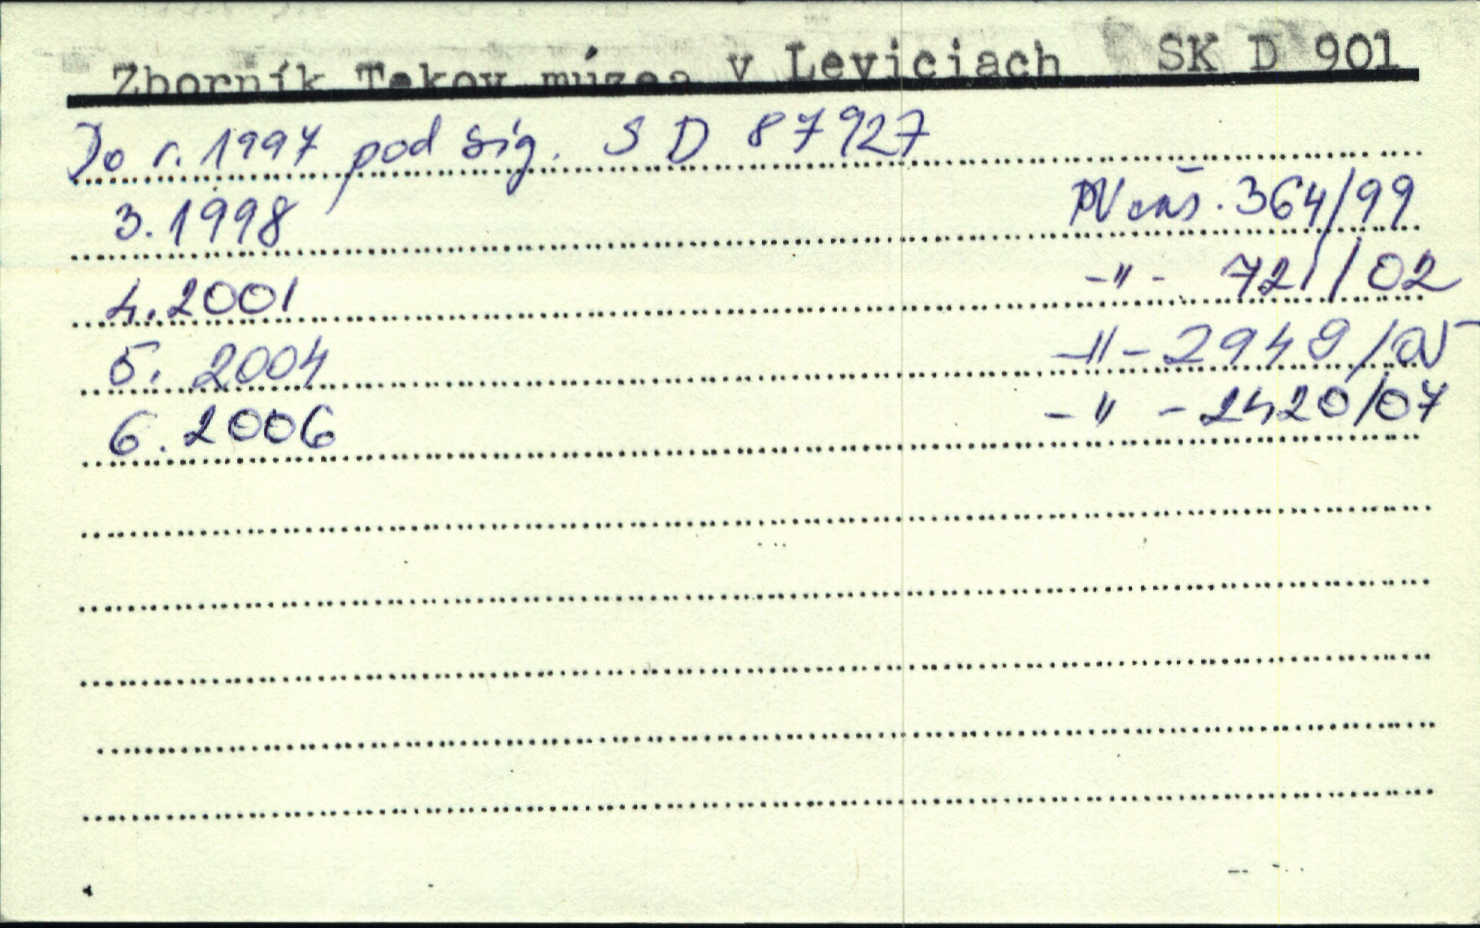 Zborník Tekov múzea v Leviciach SK D 901
Do r. 1997 pod sig. S D 87927
3.1998 PV čas. 364/99
4.2001 -"- 721/02
5. 2004 -"- 2949/05
6.2006 -"- 2420/07